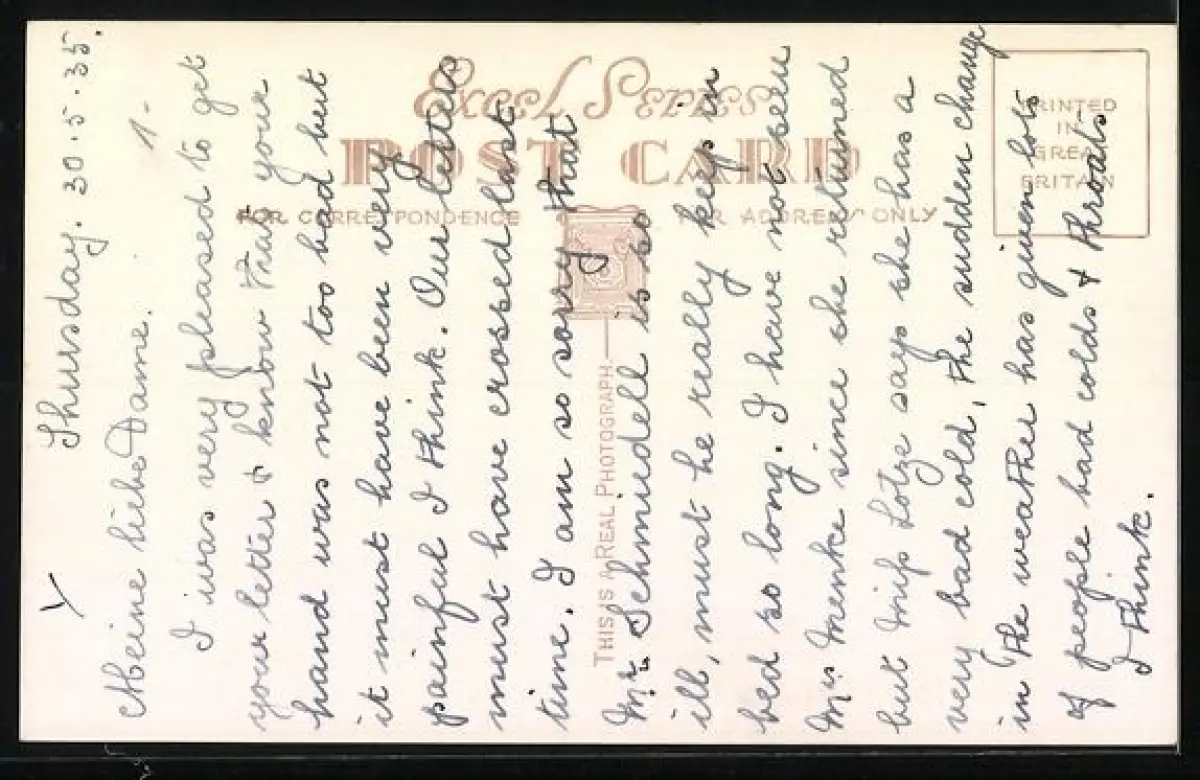 Thursday. 30.5.35.
1-
Meine liebe Dame.
I was very pleased to get
your letter & know that your
hand was not too bad but
it must have been very
painful I think. Our letters
must have crossed last
time. I am so sorry that
Mr. Schmidell is so
ill, must he really keep in
bed so long. I have not seen
Mrs Menke since she returned
but Miss Lotze says she has a
very bad cold, the sudden change
in the weather has given lots
of people bad colds & throats.
I think.
Excel Series
POST CARD
FOR CORRESPONDENCE
FOR ADDRESS ONLY
THIS IS A REAL PHOTOGRAPH
PRINTED
IN
GREAT
BRITAIN